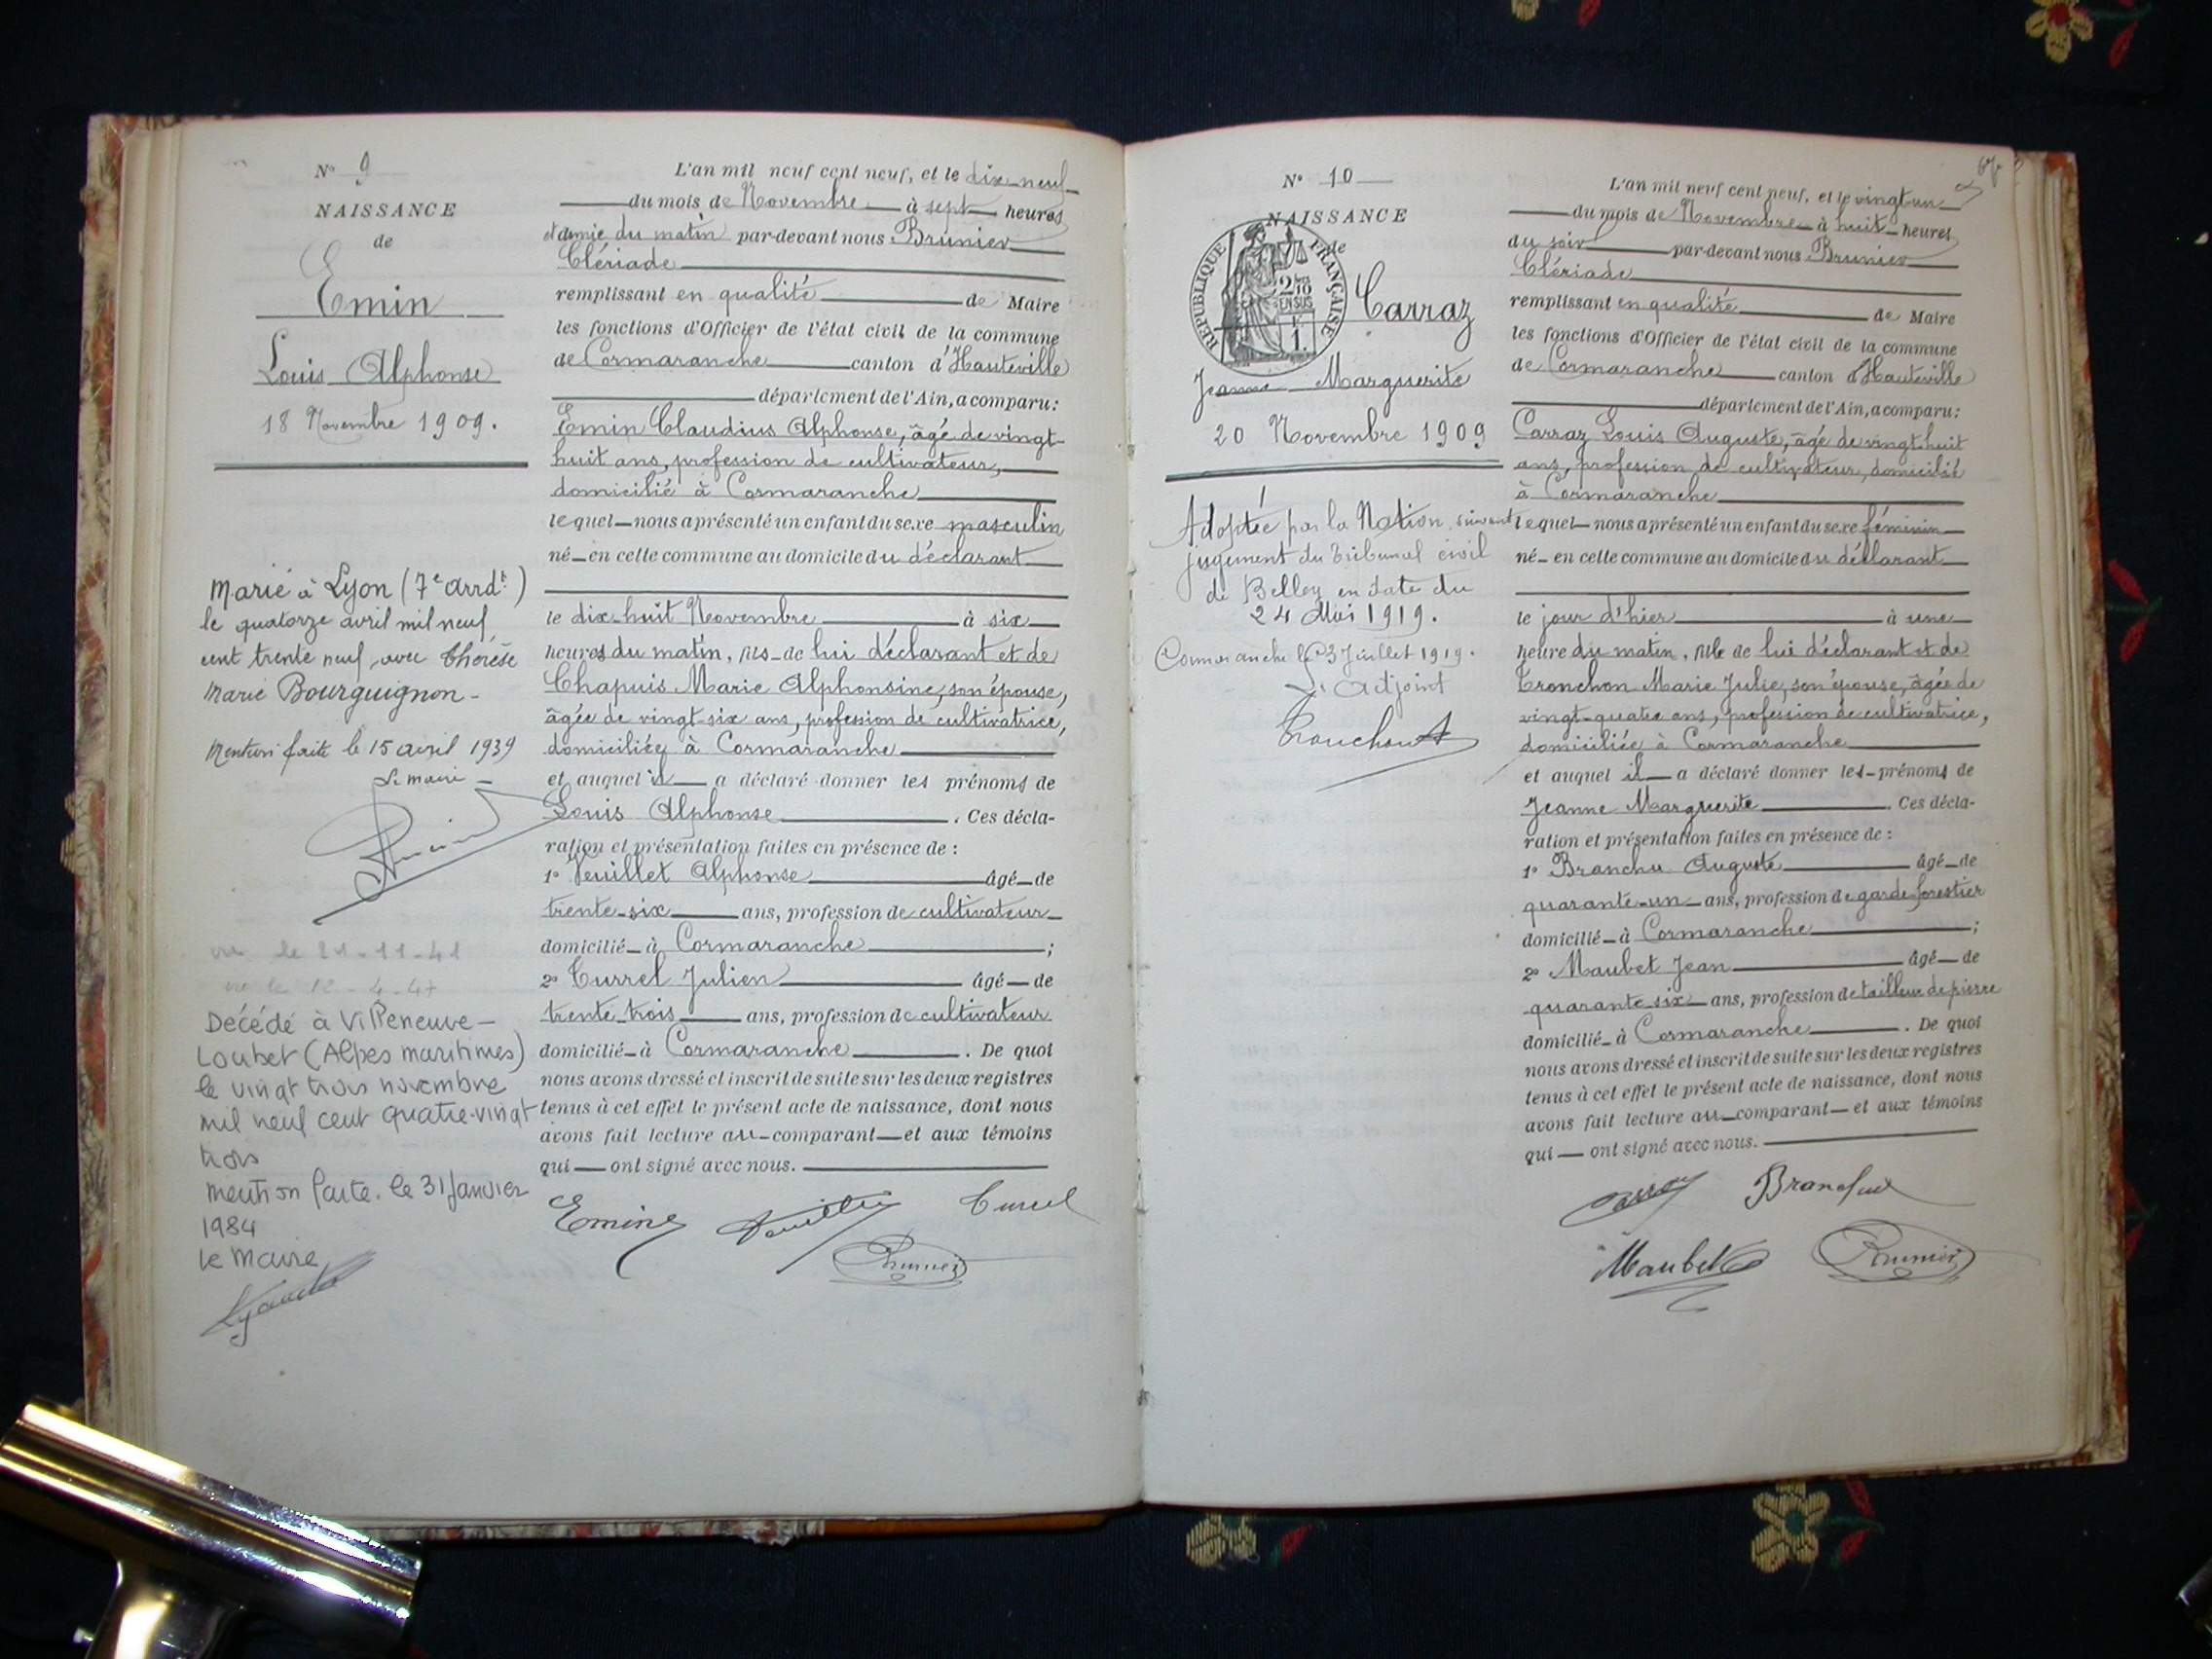 N° 9
NAISSANCE
de
Emin
Louis Alphonse
18 Novembre 1909.
Marié à Lyon (7e arrdt)
le quatorze avril mil neuf
cent trente neuf, avec Thérèse
Marie Bourguignon -
Mention faite le 15 avril 1939
Le maire -
vu le 21-11-41
vu le 12-4-47
Décédé à Villeneuve-
Loubet (Alpes maritimes)
le vingt trois novembre
mil neuf cent quatre-vingt
trois
mention faite. le 31 Janvier
1984
le Maire
L'an mil neuf cent neuf, et le dix-neuf
du mois de Novembre à sept heures
et demie du matin par-devant nous Brunier
Clériade
remplissant en qualité de Maire
les fonctions d'Officier de l'état civil de la commune
de Cormaranche canton d'Hauteville
département de l'Ain, a comparu:
Emin Claudius Alphonse, âgé de vingt-
huit ans, profession de cultivateur,
domicilié à Cormaranche
lequel nous a présenté un enfant du sexe masculin
né en cette commune au domicile du déclarant
le dix-huit Novembre à six
heures du matin, fils de lui déclarant et de
Chapuis Marie Alphonsine, son épouse,
âgée de vingt-six ans, profession de cultivatrice,
domiciliée à Cormaranche
et auquel il a déclaré donner les prénoms de
Louis Alphonse . Ces décla-
ration et présentation faites en présence de :
1° Veuillet Alphonse âgé de
trente-six ans, profession de cultivateur
domicilié à Cormaranche ;
2° Turrel Julien âgé de
trente-trois ans, profession de cultivateur
domicilié à Cormaranche . De quoi
nous avons dressé et inscrit de suite sur les deux registres
tenus à cet effet le présent acte de naissance, dont nous
avons fait lecture au comparant et aux témoins
qui ont signé avec nous.
Emin Veuillet Turrel
Brunier
N° 10
NAISSANCE
de
RÉPUBLIQUE FRANÇAISE
2/10 EN SUS
1.
Carraz
Jeanne Marguerite
20 Novembre 1909
Adoptée par la Nation, suivant
jugement du Tribunal civil
de Belley en date du
24 Mai 1919.
Cormaranche le 3 Juillet 1919.
L'Adjoint
L'an mil neuf cent neuf, et le vingt un
du mois de Novembre à huit heures
du soir par-devant nous Brunier
Clériade
remplissant en qualité de Maire
les fonctions d'Officier de l'état civil de la commune
de Cormaranche canton d'Hauteville
département de l'Ain, a comparu:
Carraz Louis Auguste, âgé de vingt-huit
ans, profession de cultivateur, domicilié
à Cormaranche
lequel nous a présenté un enfant du sexe féminin
né en cette commune au domicile du déclarant
le jour d'hier à une
heure du matin, fille de lui déclarant et de
Tronchon Marie Julie, son épouse, âgée de
vingt-quatre ans, profession de cultivatrice,
domiciliée à Cormaranche
et auquel il a déclaré donner les prénoms de
Jeanne Marguerite . Ces décla-
ration et présentation faites en présence de :
1° Branchu Auguste âgé de
quarante-un ans, profession de garde forestier
domicilié à Cormaranche ;
2° Maubet Jean âgé de
quarante-six ans, profession de tailleur de pierre
domicilié à Cormaranche . De quoi
nous avons dressé et inscrit de suite sur les deux registres
tenus à cet effet le présent acte de naissance, dont nous
avons fait lecture au comparant et aux témoins
qui ont signé avec nous.
Branchu
Maubet Brunier